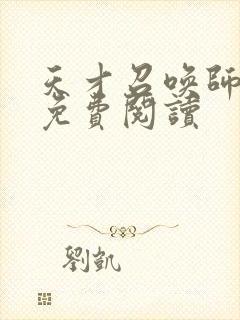 天才召喚師
免費閱讀
劉凱